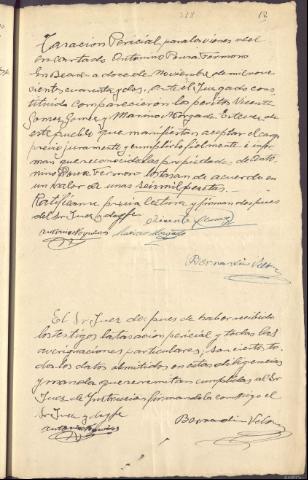 12
Tasacion Pericial para los bienes del
encartado Antonino Ferrermoro
En a doce de Noviembre de mil nove
cientos cuarenta y dos, ante el Juzgado cons
tituido comparecieron los peritos Vicente
Gomez y Mariano Morgade Estever de
este pueblo que manifiestan aceptar el cargo
previo juramento y cumplirlo fielmente é infor
man que reconocidas las propiedades de Anto
nino lo tasan de acuerdo en
un valor de unas seis mil pesetas.
Ratificanse previa lectura y firman despues
del Sr Juez y doy fe
Vicente Gomez
Bernardino Velo
El Sr Juez despues de haber recibido
los testigos la tasación pericial y todas las
averiguaciones particulares, son ciertos to
dos los datos admitidos en estas diligencias
y manda que se remitan cumplidas al Sr
Juez de Instrucción firmandola conmigo el
Sr Juez y doy fe
Bernardino Velo